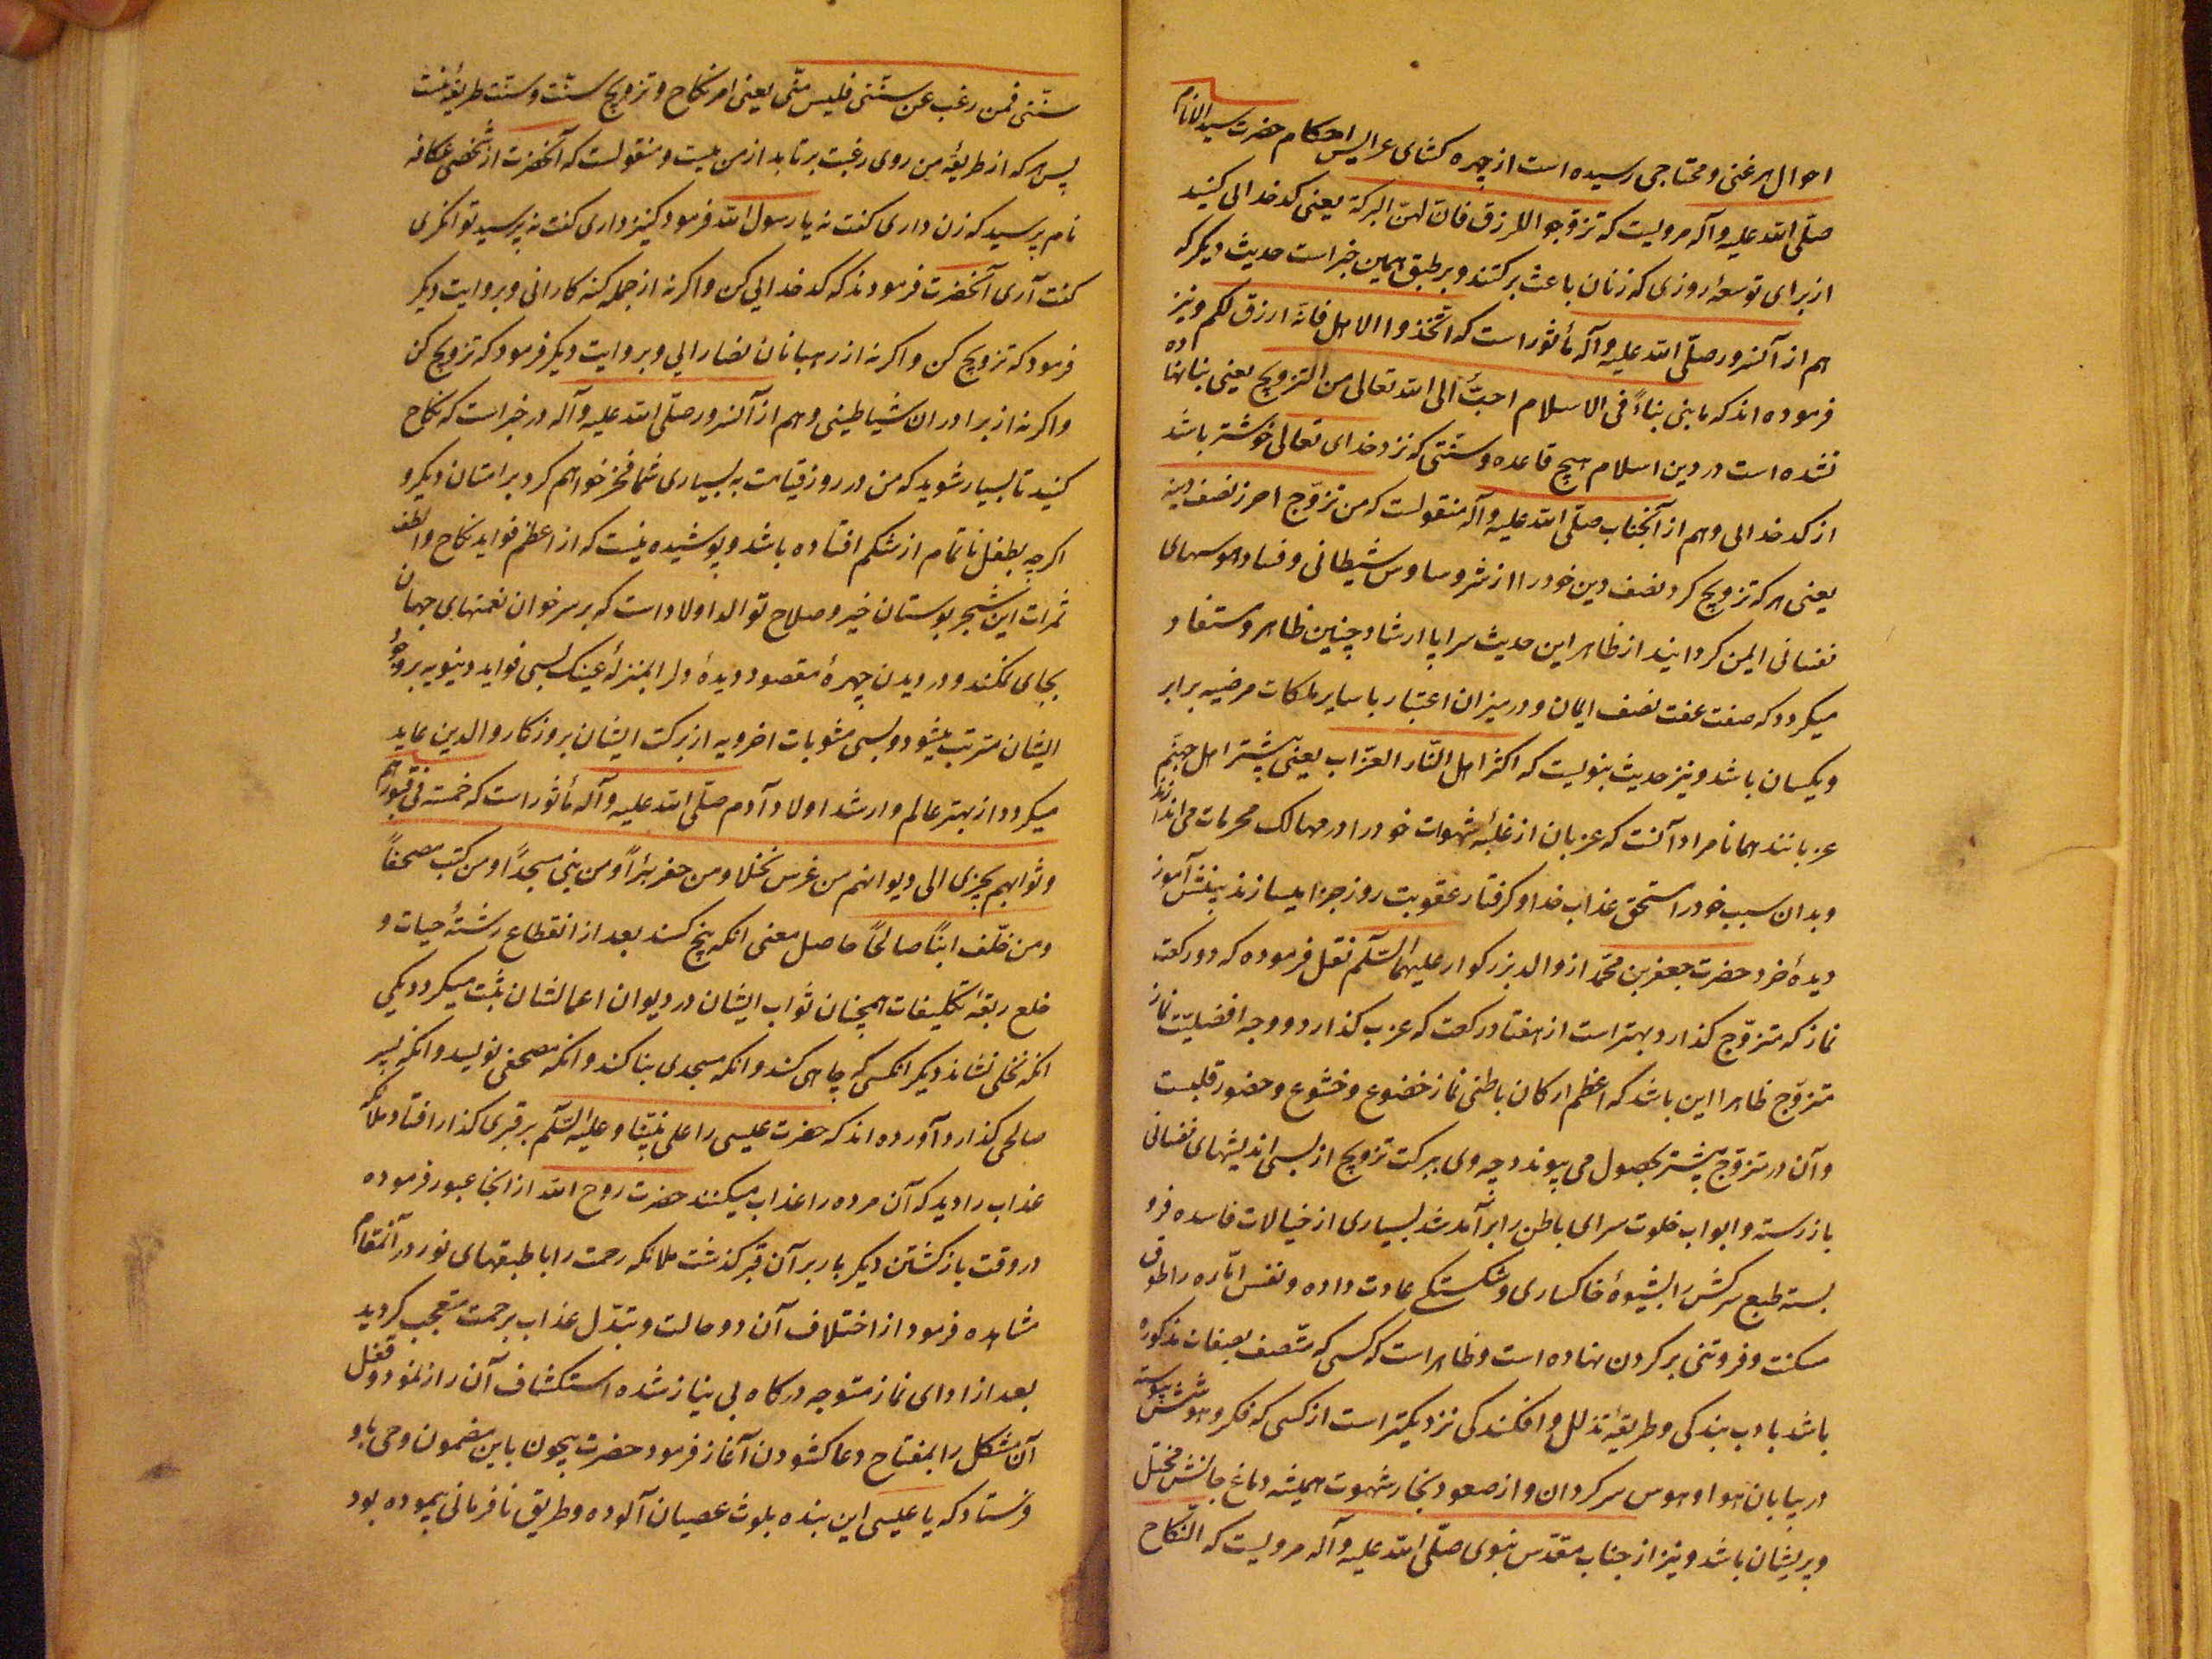 احوال هر غنی و محتاجی رسیده است از چهره کشای عرایس احکام حضرت سید الانام
صلّی الله علیه وآله مرویست که تزوّجوا للرزق فانّ لهنّ البرکة یعنی کدخدائی کنید
از برای توسعهٔ روزی که زنان باعث برکتند و بر طبق همین خبر است حدیث دیگر که
هم از آنسرور صلّی الله علیه وآله مأثور است که اتّخذوا الاهل فانّه ارزق لکم و نیز
فرموده اند که ما بنی بناءً فی الاسلام احبّ الی الله تعالی من التزویج یعنی بنا نهاده
نشده است در دین اسلام هیچ قاعده و سنّتی که نزد خدای تعالی خوشتر باشد
از کدخدائی و هم از آنجناب صلّی الله علیه وآله منقولست که من تزوّج احرز نصف دینه
یعنی هر که تزویج کرد نصف دین خود را از شر وساوس شیطانی و فساد هوسهای
نفسانی ایمن کردانید از ظاهر این حدیث سراپا ارشاد چنین ظاهر و مستفاد
میگردد که صفت عفت نصف ایمان و در میزان اعتبار با سایر ملکات مرضیه برابر
و یکسان باشد و نیز حدیث نبویست که اکثر اهل النّار العزّاب یعنی بیشتر اهل جهنّم
عزبانند همانا مراد آنست که عزبان از غلبهٔ شهوات خود را در مهالک محرمات می اندازند
و بدان سبب خود را مستحق عذاب خدا و کرفتار عقوبت روز جزا میسازند بینش آموز
دیدهٔ خرد حضرت جعفر بن محمّد از والد بزرکوار علیهما السّلم نقل فرموده که دو رکعت
نماز که متزوّج کذارد بهتر است از هفتاد رکعت که عزب کذارد و وجه افضلیّت نماز
متزوّج ظاهرا این باشد که اعظم ارکان باطنی نماز خضوع و خشوع و حضور قلبست
و آن در متزوّج بیشتر بحصول می پیوندد چه وی ببرکت تزویج از بسی اندیشهای نفسانی
باز رسته و ابواب خلوت سرای باطن را بر آمدشد بسیاری از خیالات فاسده فرو
بسته طبع سرکش را بشیوهٔ خاکساری و شکستگی عادت داده و نفس امّاره را طوق
مسکنت و فروتنی بر کردن نهاده است و ظاهر است که کسی که متّصف بصفات مذکوره
باشد بادب بندکی و طریقهٔ تذلل و افکندکی نزدیکتر است از کسی که فکر و هوشش پیوسته
در بیابان هوا و هوس سرکردان و از صعود بخار شهوت همیشه دماغ جانش مختل
و پریشان باشد و نیز از جناب مقدّس نبوی صلّی الله علیه وآله مرویست که النّکاح
سنّتی فمن رغب عن سنّتی فلیس منّی یعنی امر نکاح و تزویج سنّت و سنّت طریقهٔ منست
پس هر که از طریقهٔ من روی رغبت برتابد از من نیست و منقولست که آنحضرت از شخصی عکافه
نام پرسید که زن داری کفت نه یا رسول الله فرمود کنیز داری کفت نه پرسید توانکری
کفت آری آنحضرت فرمودند که کدخدائی کن و اکر نه از جمله کنه کارانی و بروایت دیکر
فرمود که تزویج کن و اکر نه از رهبانان نصارائی و بروایت دیکر فرمود که تزویج کن
و اکر نه از برادران شیاطینی و هم از آنسرور صلّی الله علیه وآله در خبر است که نکاح
کنید تا بسیار شوید که من در روز قیامت به بسیاری شما فخر خواهم کرد بر امتان دیکر و
اکرچه بطفل ناتمام از شکم افتاده باشد و پوشیده نیست که از اعظم فواید نکاح و الطف
ثمرات این شجر بوستان خیر و صلاح توالد اولاد است که بر سر خوان نعمتهای جهان
بجای نمکند و در دیدن چهرهٔ مقصود دیدهٔ دل را بمنزلهٔ عینک بسی فواید دنیویه بر وجود
ایشان مترتب میشود و بسی مثوبات اخرویه از برکت ایشان بروزکار والدین عاید
میکردد از بهتر عالم و ارشد اولاد آدم صلّی الله علیه وآله مأثور است که خمسة فی قبورهم
و ثوابهم یجری الی دیوانهم من غرس نخلا و من حفر بئراً و من بنی مسجداً و من کتب مصحفاً
و من خلّف ابناً صالحاً حاصل معنی انکه پنج کسند بعد از انقطاع رشتهٔ حیات و
خلع ربقهٔ تکلیفات همچنان ثواب ایشان در دیوان اعمالشان ثبت میکردد یکی
انکه نخلی نشاند دیکر انکسی که چاهی کند و انکه مسجدی بنا کند و انکه مصحفی نویسد و انکه پسر
صالحی کذارد آورده اند که حضرت عیسی را علی نبیّنا و علیه السّلم بر قبری کذار افتاد ملائکه
عذاب را دید که آن مرده را عذاب میکنند حضرت روح الله از انجا عبور فرموده
در وقت باز کشتن دیکر بار بر آن قبر کذشت ملائکه رحمت را با طبقهای نور در آنمقام
مشاهده فرمود از اختلاف آن دو حالت و تبدّل عذاب برحمت متعجب کردید
بعد از ادای نماز متوجه درکاه بی نیاز شده استکشاف آن راز نمود و قفل
آن مشکل را بمفتاح دعا کشودن آغاز فرمود حضرت بیچون باین مضمون وحی باو
فرستاد که یا عیسی این بنده بلوث عصیان آلوده و طریق نافرمانی پیموده بود